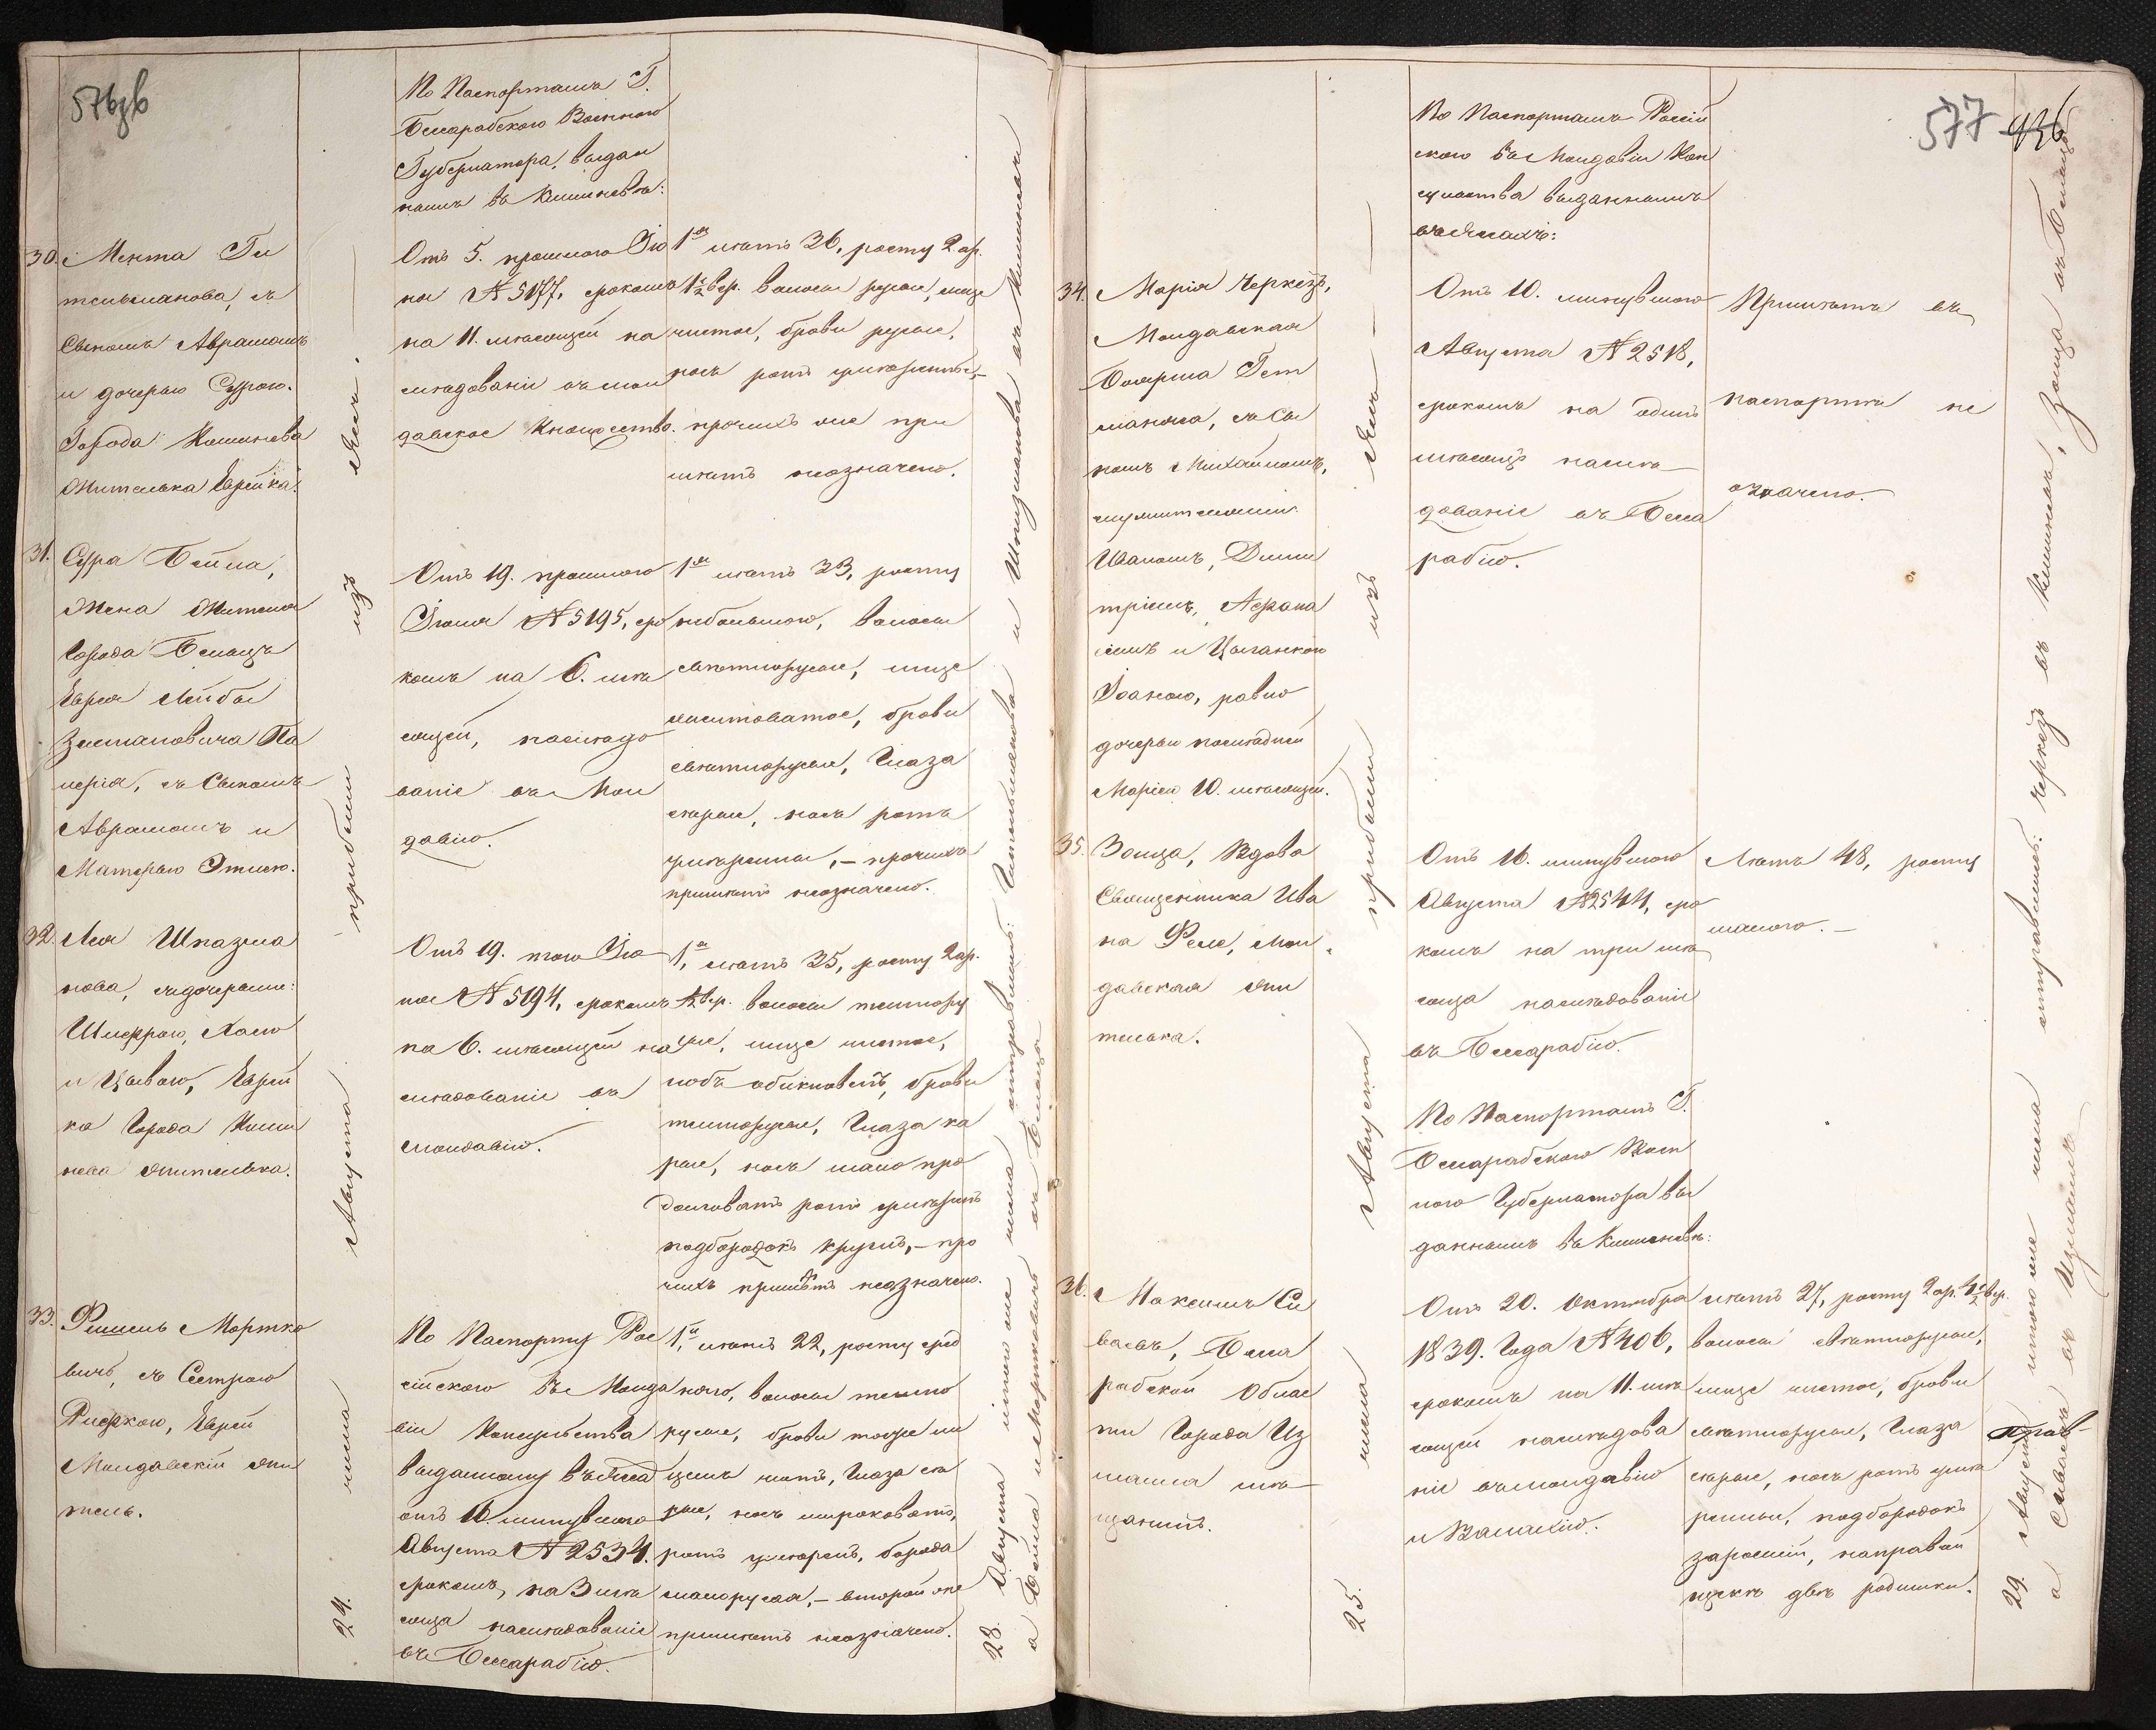 576 об
По Паспортамъ Г.
Бессарабского Военного
Губернатора, выдан
нымъ въ Кишиневѣ:
30.
Мента Ги
тельманова, съ
Сыномъ Аврамомъ
и дочерью Сурою.
Города Кишинева
Жителька Еврейка.
Отъ 5. прошлого Iю
ля № 5177, срокомъ
на 11. мѣсяцей на
слѣдованіе въ мол
давское Княжество.
1я лѣтъ 36, росту 2 ар.
1½ вер. волосы русые, лице
чистое, брови русые,
носъ ротъ умѣренные,
прочихъ же при
мѣтъ неозначено.
31.
Сура Бейла,
Жена Жителя
города Бельцъ
Еврея Лейбы
Зельмановича Па
лерія, съ Сыномъ
Аврамомъ и
Матерью Этлею.
Отъ 19. прошлого
Iюля № 5195, сро
комъ на 6. мѣ
сяцей, наслѣдо
ваніе въ Мол
давію.
1я лѣтъ 23, росту
небольшого, волосы
свѣтлорусые, лице
чистоватое, брови
свѣтлорусые, Глаза
серые, носъ ротъ
умѣренные, – прочихъ
примѣтъ неозначено.
32.
Лея Шпазма
нова, съдочерьми:
Шифрою, Хаею
и Цывою, Еврей
ка Города Киши
нева жителька.
Отъ 19. того Iю
ля № 5194, срокомъ
на 6. мѣсяцей на
слѣдованіе въ
молдавію.
1, я лѣтъ 35, росту 2 ар.
½ вер. волосы темнору
сые, лице чистое,
лобъ обикновенъ, брови
темнорусые, Глаза ка
рые, носъ мало про
долговатъ ротъ умѣренъ
подбородокъ круглъ, – про
чихъ примѣтъ неозначено.
33.
Фишель Мортко
вичъ, съ Сестрою
Рифкою, Еврей
Молдавскій жи
тель.
По Паспорту Рос
сійского въ Молда
віи Консульства
выданному въ Яссахъ
отъ 16. минувшого
Августа № 2534.
срокомъ, на 3 мѣ
сяца наслѣдованіе
въ Бессарабію.
1, й лѣтъ 22, росту сред
него, волосы темно
русые, брови тоже ли
цемъ чистъ, Глаза се
рые, носъ широковатъ,
ротъ умѣренъ, борода
малорусая, – второй же
примѣтъ неозначено.
24. числа Августа прибыли изъ Яссъ.
28. Августа итого же числа отправились: Гительманова и Шпазманова въ Кишиневъ
а Бейла и Мортковичъ въ Бельцы
577 436
По Паспортамъ Россій
ского въ Молдавіи Кон
сульства выданнымъ
въ Яссахъ:
34.
Марія Черкезъ,
Молдавская
Боярша Гет
манша, съ Сы
номъ Михайломъ,
служителями
Иваномъ, Дими
тріемъ, Афана
сіемъ и Цыганкою
Iоаною, равно
дочерью послѣдней
Маріею 10. мѣсяцей.
Отъ 10. минувшого
Августа № 2518,
срокомъ на одинъ
мѣсяцъ наслѣ
дованіе въ Бесса
рабію.
Примѣтъ въ
паспортѣ не
означено.
35.
Зоица, Вдова
Священника Ива
на Феле, Мол
давская жи
телька.
Отъ 16. минувшого
Августа № 2544, сро
комъ на три мѣ
сяца наслѣдованіе
въ Бессарабію.
Лѣтъ 48, росту
малого. –
По Паспортамъ Г.
Бессарабского Воен
ного Губернатора вы
данныхъ въ Кишиневѣ:
36.
Максимъ Си
вовъ, Бесса
рабской Облас
ти Города Из
маила мѣ
щанинъ.
Отъ 20. Октября
1839. Года № 406,
срокомъ на 11. мѣ
сяцей наслѣдова
ніе въ молдавію
и Валахію.
лѣтъ 27, росту 2 ар. 4½ вер.
волосы свѣтлорусые,
лице чистое, брови
свѣтлорусые, Глаза
серые, носъ ротъ умѣ
ренны, подбородокъ
заросшій, направой
щекѣ двѣ родинки.
25. числа Августа прибыли изъ Яссъ
29. Августа итого же числа отправились: Черкезъ въ Кишиневъ, Зоица въ Бельцы
а Сивовъ въ Измаилъ